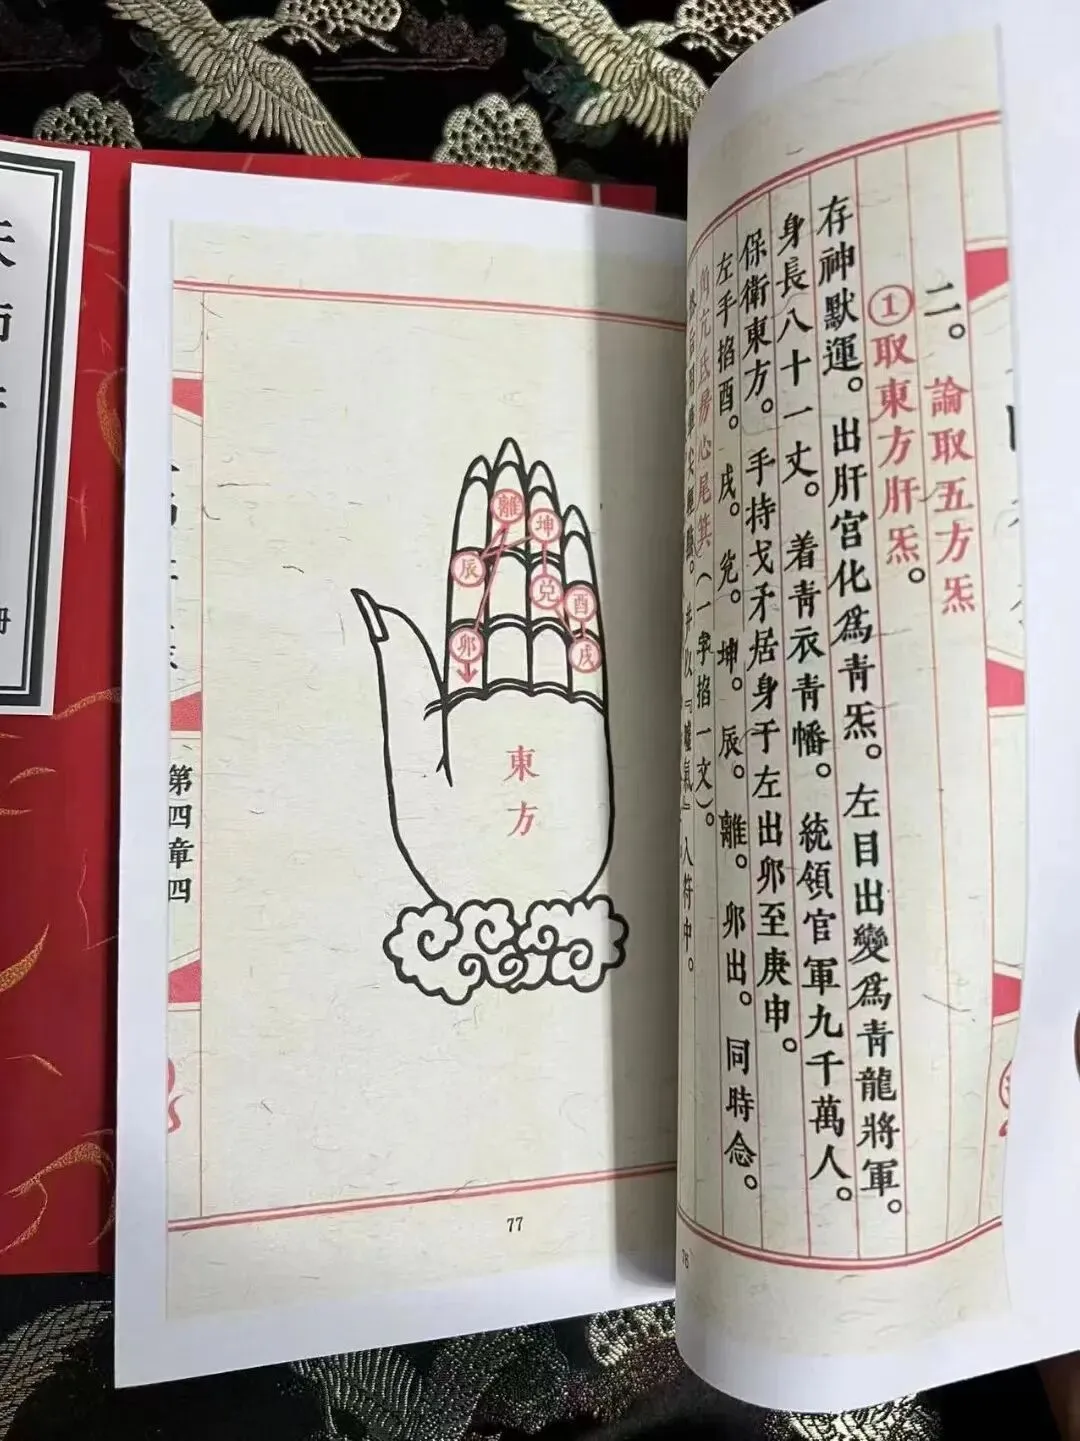 二。論取五方炁
①取東方肝炁。
存神默運。出肝宮化爲青炁。左目出變爲青龍將軍。
身長八十一丈。着青衣青幡。統領官軍九千萬人。
保衛東方。手持戈矛居身于左出卯至庚申。
左手掐酉。戌。兌。坤。辰。離。卯出。同時念。
角亢氐房心尾箕（一字掐一文）。
入符中。
76
離
坤
辰
兌
酉
卯
戌
東方
第四章四
77